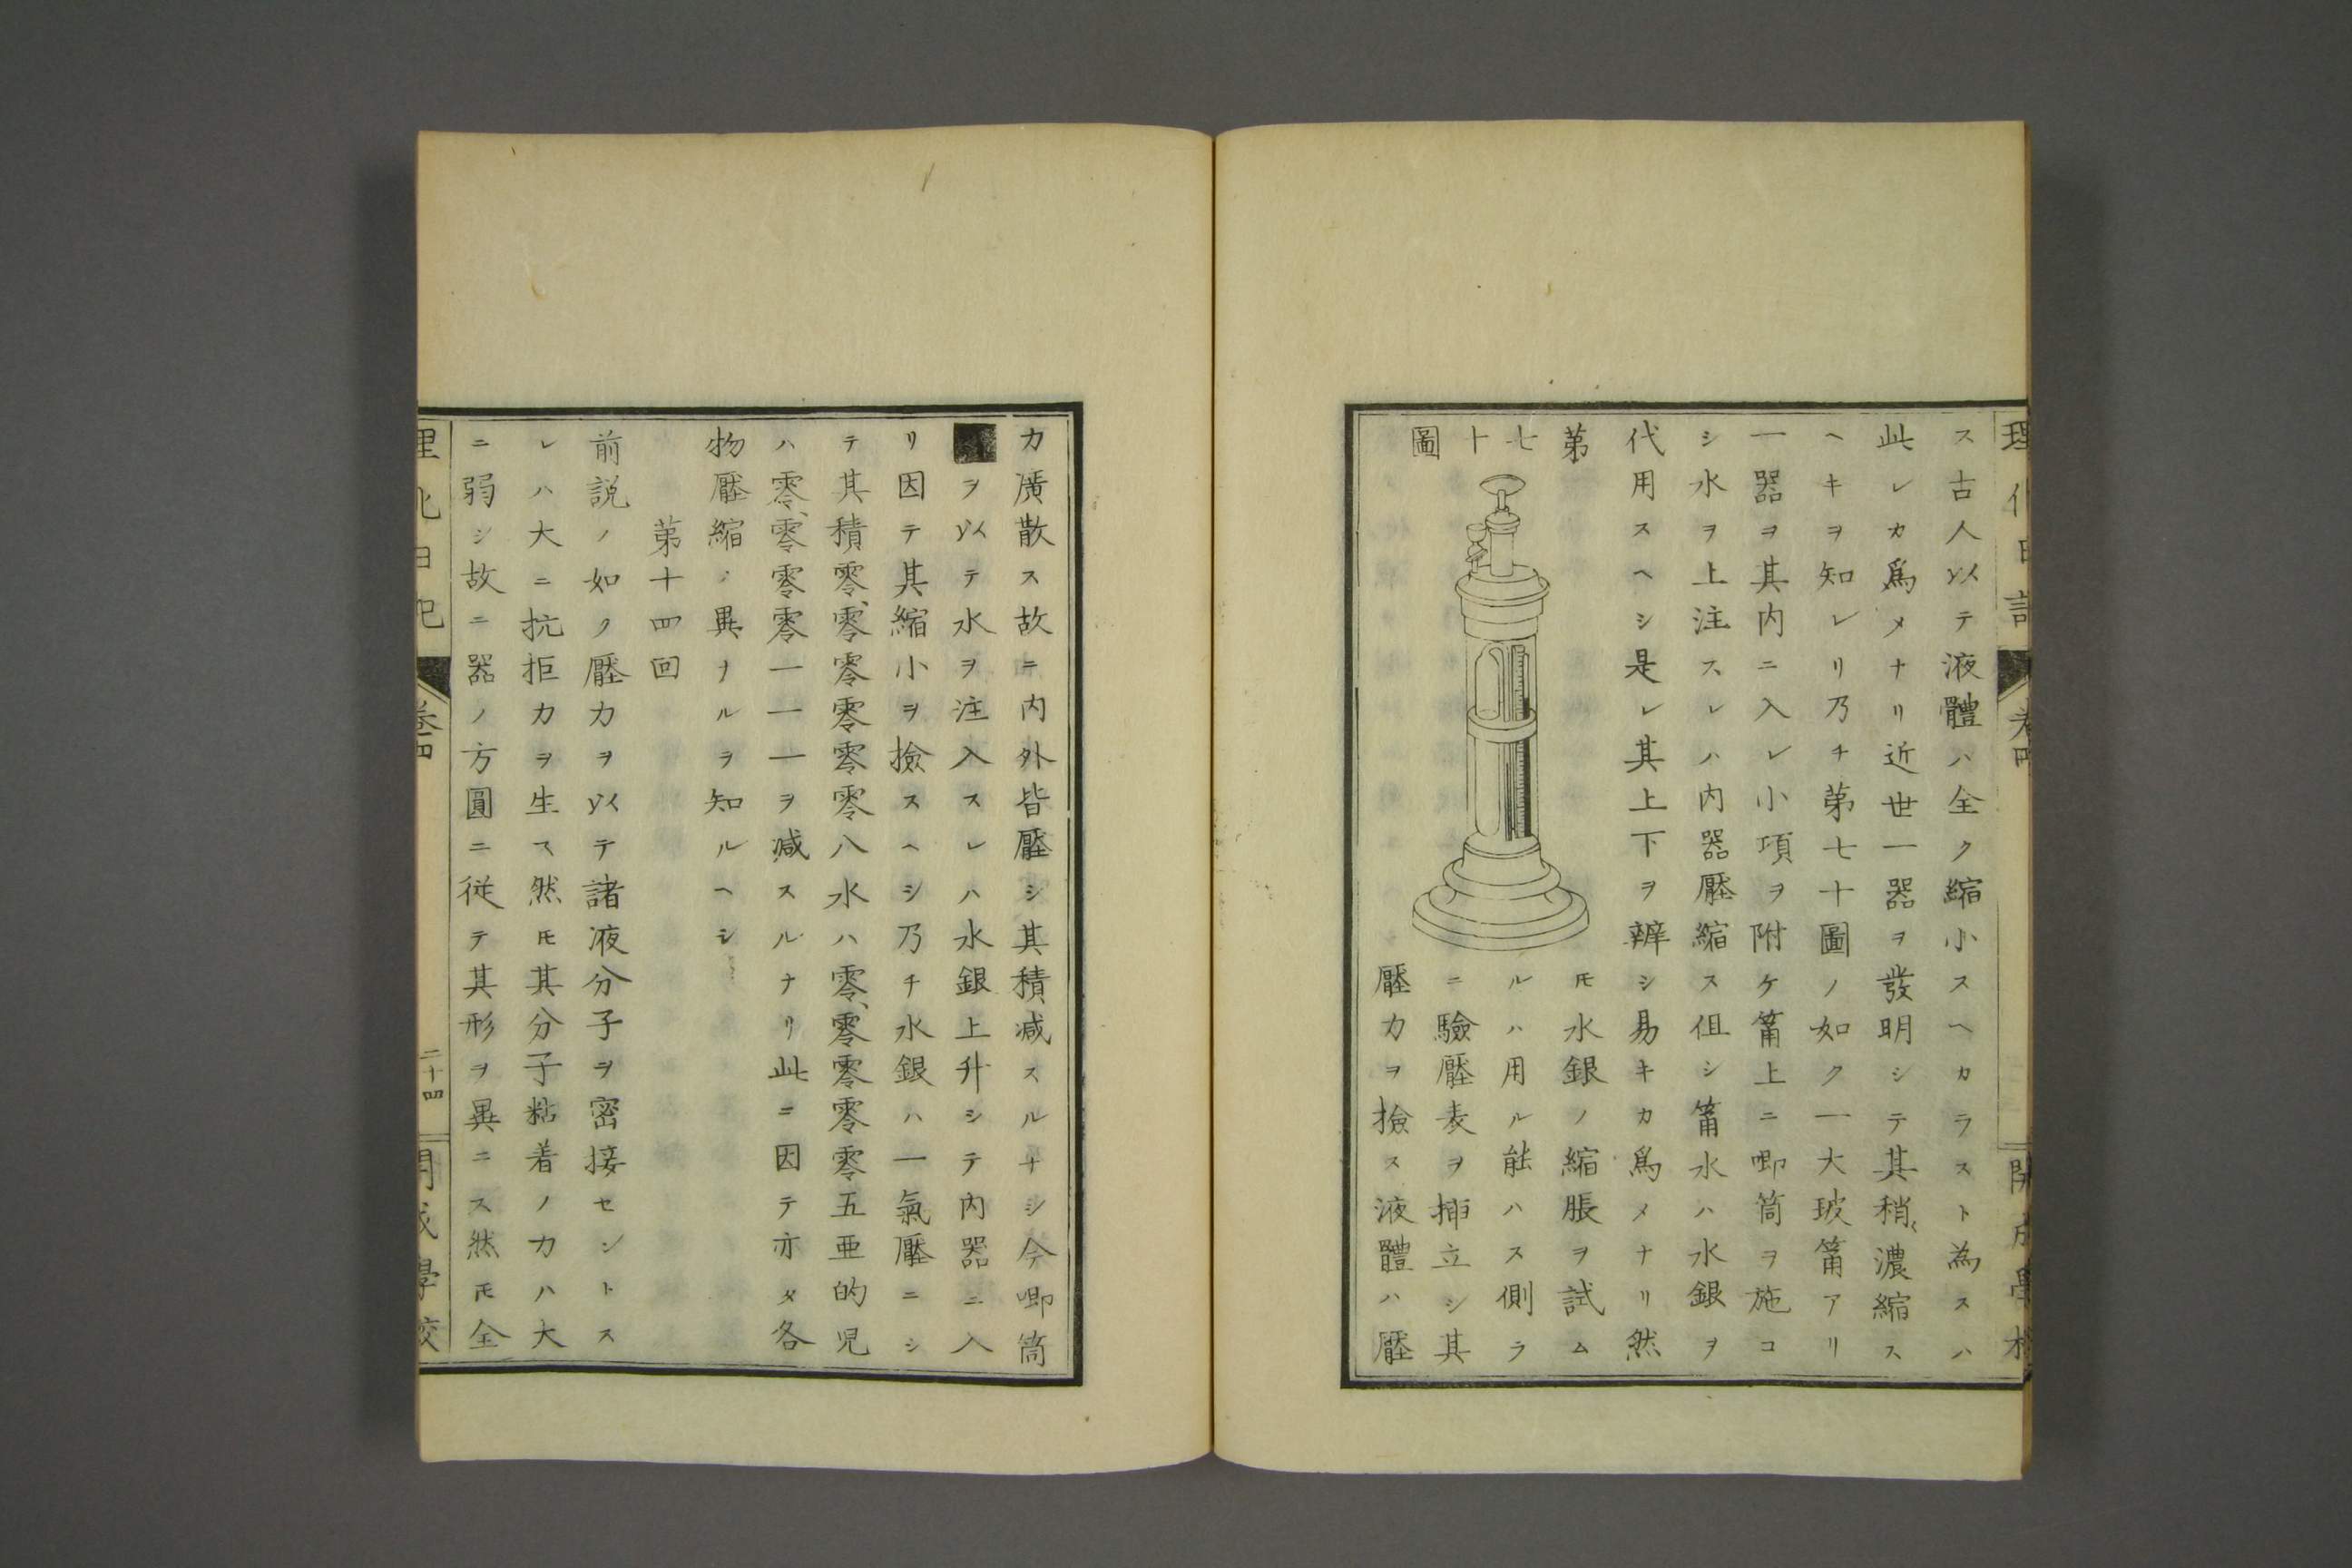 理化日記 巻四 開成學校
ス古人以テ液體ハ全ク縮小スヘカラスト為スハ
此レカ爲メナリ近世一器ヲ發明シテ其稍〻濃縮ス
ヘキヲ知レリ乃チ第七十圖ノ如ク一大玻筩アリ
一器ヲ其内ニ入レ小項ヲ附ケ筩上ニ喞筒ヲ施コ
シ水ヲ上注スレハ内器壓縮ス但シ筩水ハ水銀ヲ
代用スヘシ是レ其上下ヲ辨シ易キカ爲メナリ然
第七十圖
𪜈水銀ノ縮脹ヲ試ム
ルハ用ル能ハス側ラ
ニ驗壓表ヲ挿立シ其
壓力ヲ撿ス液體ハ壓
力廣散ス故ニ内外皆壓シ其積減スルナシ今喞筒
ヲ以テ水ヲ注入スレハ水銀上升シテ内器ニ入
リ因テ其縮小ヲ撿スヘシ乃チ水銀ハ一氣壓ニシ
テ其積零、零零零零零八水ハ零、零零零零五亜的児
ハ零、零零零一一一ヲ減スルナリ此ニ因テ亦タ各
物壓縮ノ異ナルヲ知ルヘシ
第十四回
前説ノ如ク壓力ヲ以テ諸液分子ヲ密接セントス
レハ大ニ抗拒力ヲ生ス然𪜈其分子粘着ノ力ハ大
ニ弱シ故ニ器ノ方圓ニ従テ其形ヲ異ニス然𪜈全
理化日記 巻四 二十四 開成學校